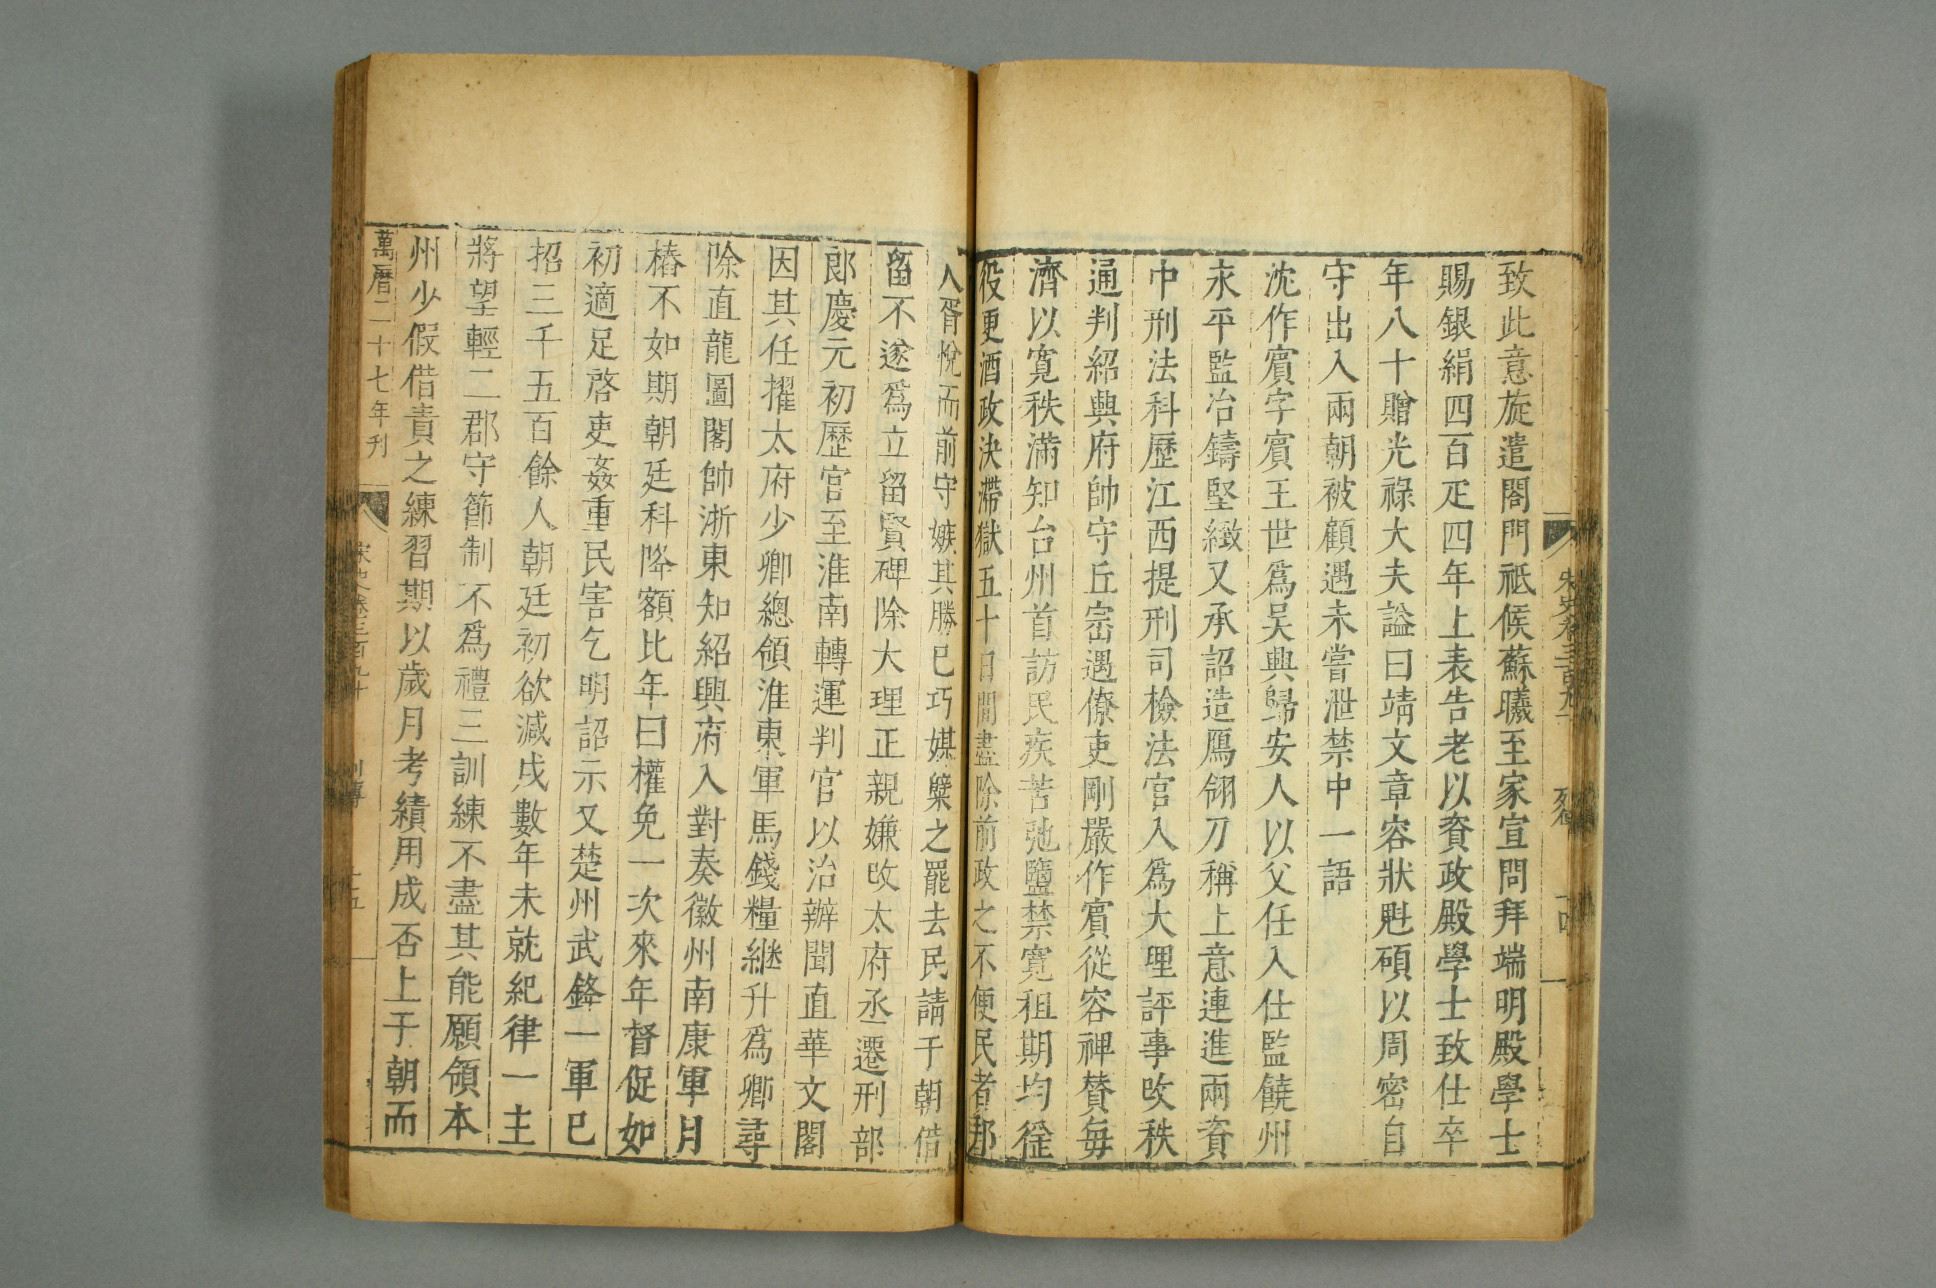 宋史卷三百九十
列傳
十四
致此意旋遣閤門祗候蘇曦至家宣問拜端明殿學士
賜銀絹四百疋四年上表告老以資政殿學士致仕卒
年八十贈光祿大夫謚曰靖文章容狀魁碩以周密自
守出入兩朝被顧遇未嘗泄禁中一語
沈作賓字賓王世爲吳興歸安人以父任入仕監饒州
永平監冶鑄堅緻又承詔造鴈翎刀稱上意連進兩資
中刑法科歷江西提刑司檢法官入爲大理評事改秩
通判紹興府帥守丘崈遇僚吏剛嚴作賓從容裨賛每
濟以寛秩滿知台州首訪民疾苦弛鹽禁寛租期均徭
役更酒政決滯獄五十日間盡除前政之不便民者郡
人胥悅而前守嫉其勝巳巧媒糵之罷去民請于朝借
留不遂爲立留賢碑除大理正親嫌改太府丞遷刑部
郎慶元初歷官至淮南轉運判官以治辦聞直華文閣
因其任擢太府少卿總領淮東軍馬錢糧継升爲卿尋
除直龍圖閣帥浙東知紹興府入對奏徽州南康軍月
樁不如期朝廷科降額比年曰權免一次來年督促如
初適足啓吏姦重民害乞明詔示又楚州武鋒一軍巳
招三千五百餘人朝廷初欲減戍數年未就紀律一主
將望輕二郡守節制不爲禮三訓練不盡其能願領本
州少假借責之練習期以歲月考績用成否上于朝而
萬曆二十七年刊
宋史卷三百九十
列傳
十五